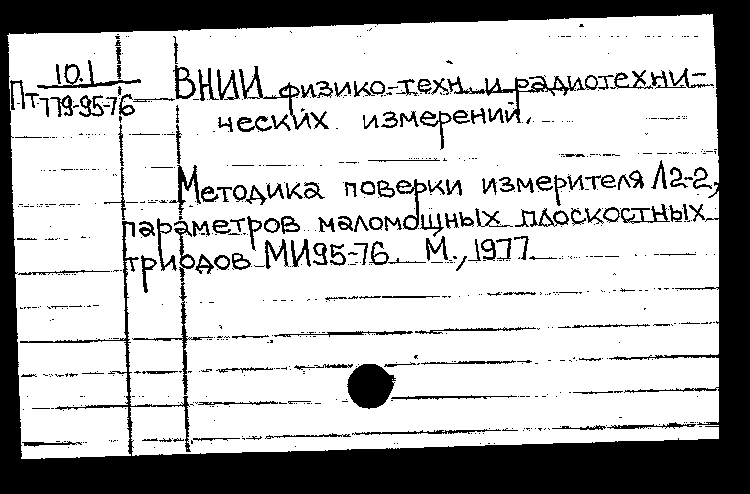 10.1
Пт 779-95-76
ВНИИ физико-техн. и радиотехни-
ческих измерений.
Методика поверки измерителя Л2-2,
параметров маломощных плоскостных
триодов МИ95-76. М., 1977.